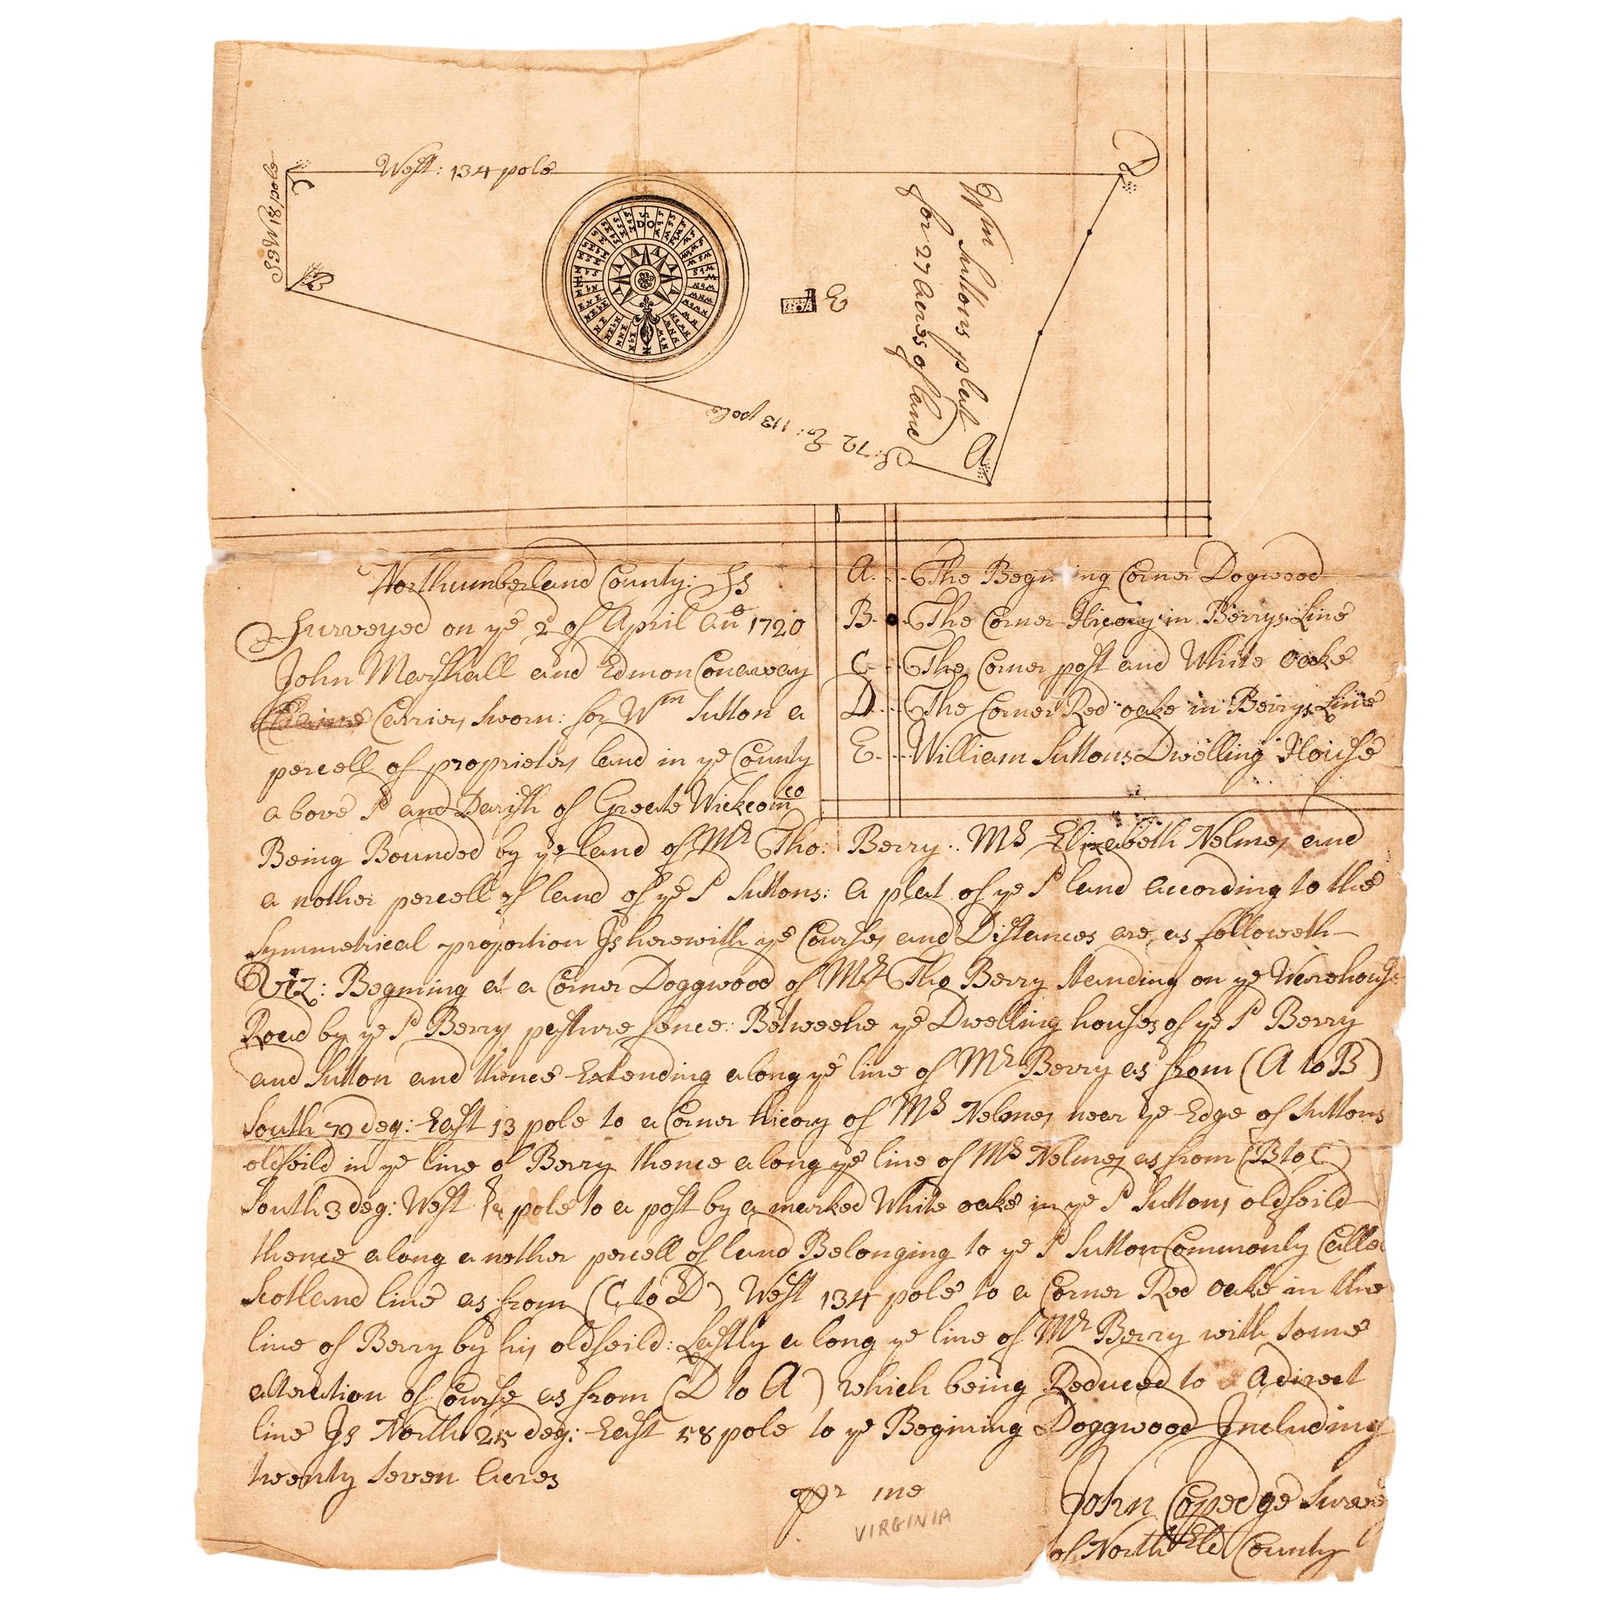 West: 134 pole
C
S3W 18 pole
B
D
E
Wm Suttons plat
for 27 Acres of land
S: 72 E: 113 pole
A
Northumberland County: Ss
Surveyed on ye 2 of April Ano 1720
John Marshall and Edmon Conaway
Carriers sworn: for Wm Sutton a
percell of proprietors land in ye County
above Sd and Parish of Greate Wickcomco
A. The Begining Corner Dogwood
B. The Corner Hicory in Berrys Line
C. The Corner post and White oake
D. The Corner Red oake in Berrys Line
E. William Suttons Dwelling House
Being Bounded by ye land of Mr Tho: Berry.. Ms Elizabeth Nelmes and
a nother percell of land of ye Sd Suttons: a plat of ye Sd land according to the
Symmetrical proportion Is herewith ye Courses and Distances are as followeth
Viz: Begining at a Corner Doggwood of Mr Tho Berry standing on ye Warehouse
Road by ye Sd Berrys pasture fence: Betweene ye Dwelling houses of ye Sd Berry
and Sutton and thence Extending along ye line of Mr Berry as from (A to B)
South 72 deg: East 113 pole to a Corner hicory of Ms Nelmes near ye Edge of Suttons
oldfeild in ye line of Berry thence along ye line of Ms Nelmes as from (B to C)
South 3 deg: West 18 pole to a post by a marked White oake in ye Sd Suttons oldfeild
thence along a nother percell of land Belonging to ye Sd Sutton Commonly Calle
Scotland line as from (C to D) West 134 pole to a Corner Red oake in the
line of Berry by his oldfeild: Lastly a long ye line of Mr Berry with some
alteration of Course as from (D to A) which being Reduced to a direct
line Is North 25 deg: East 58 pole to ye Begining Doggwood Including
twenty seven Acres
ppr me
VIRGINIA
John Coppedge Surve
of Northbld County